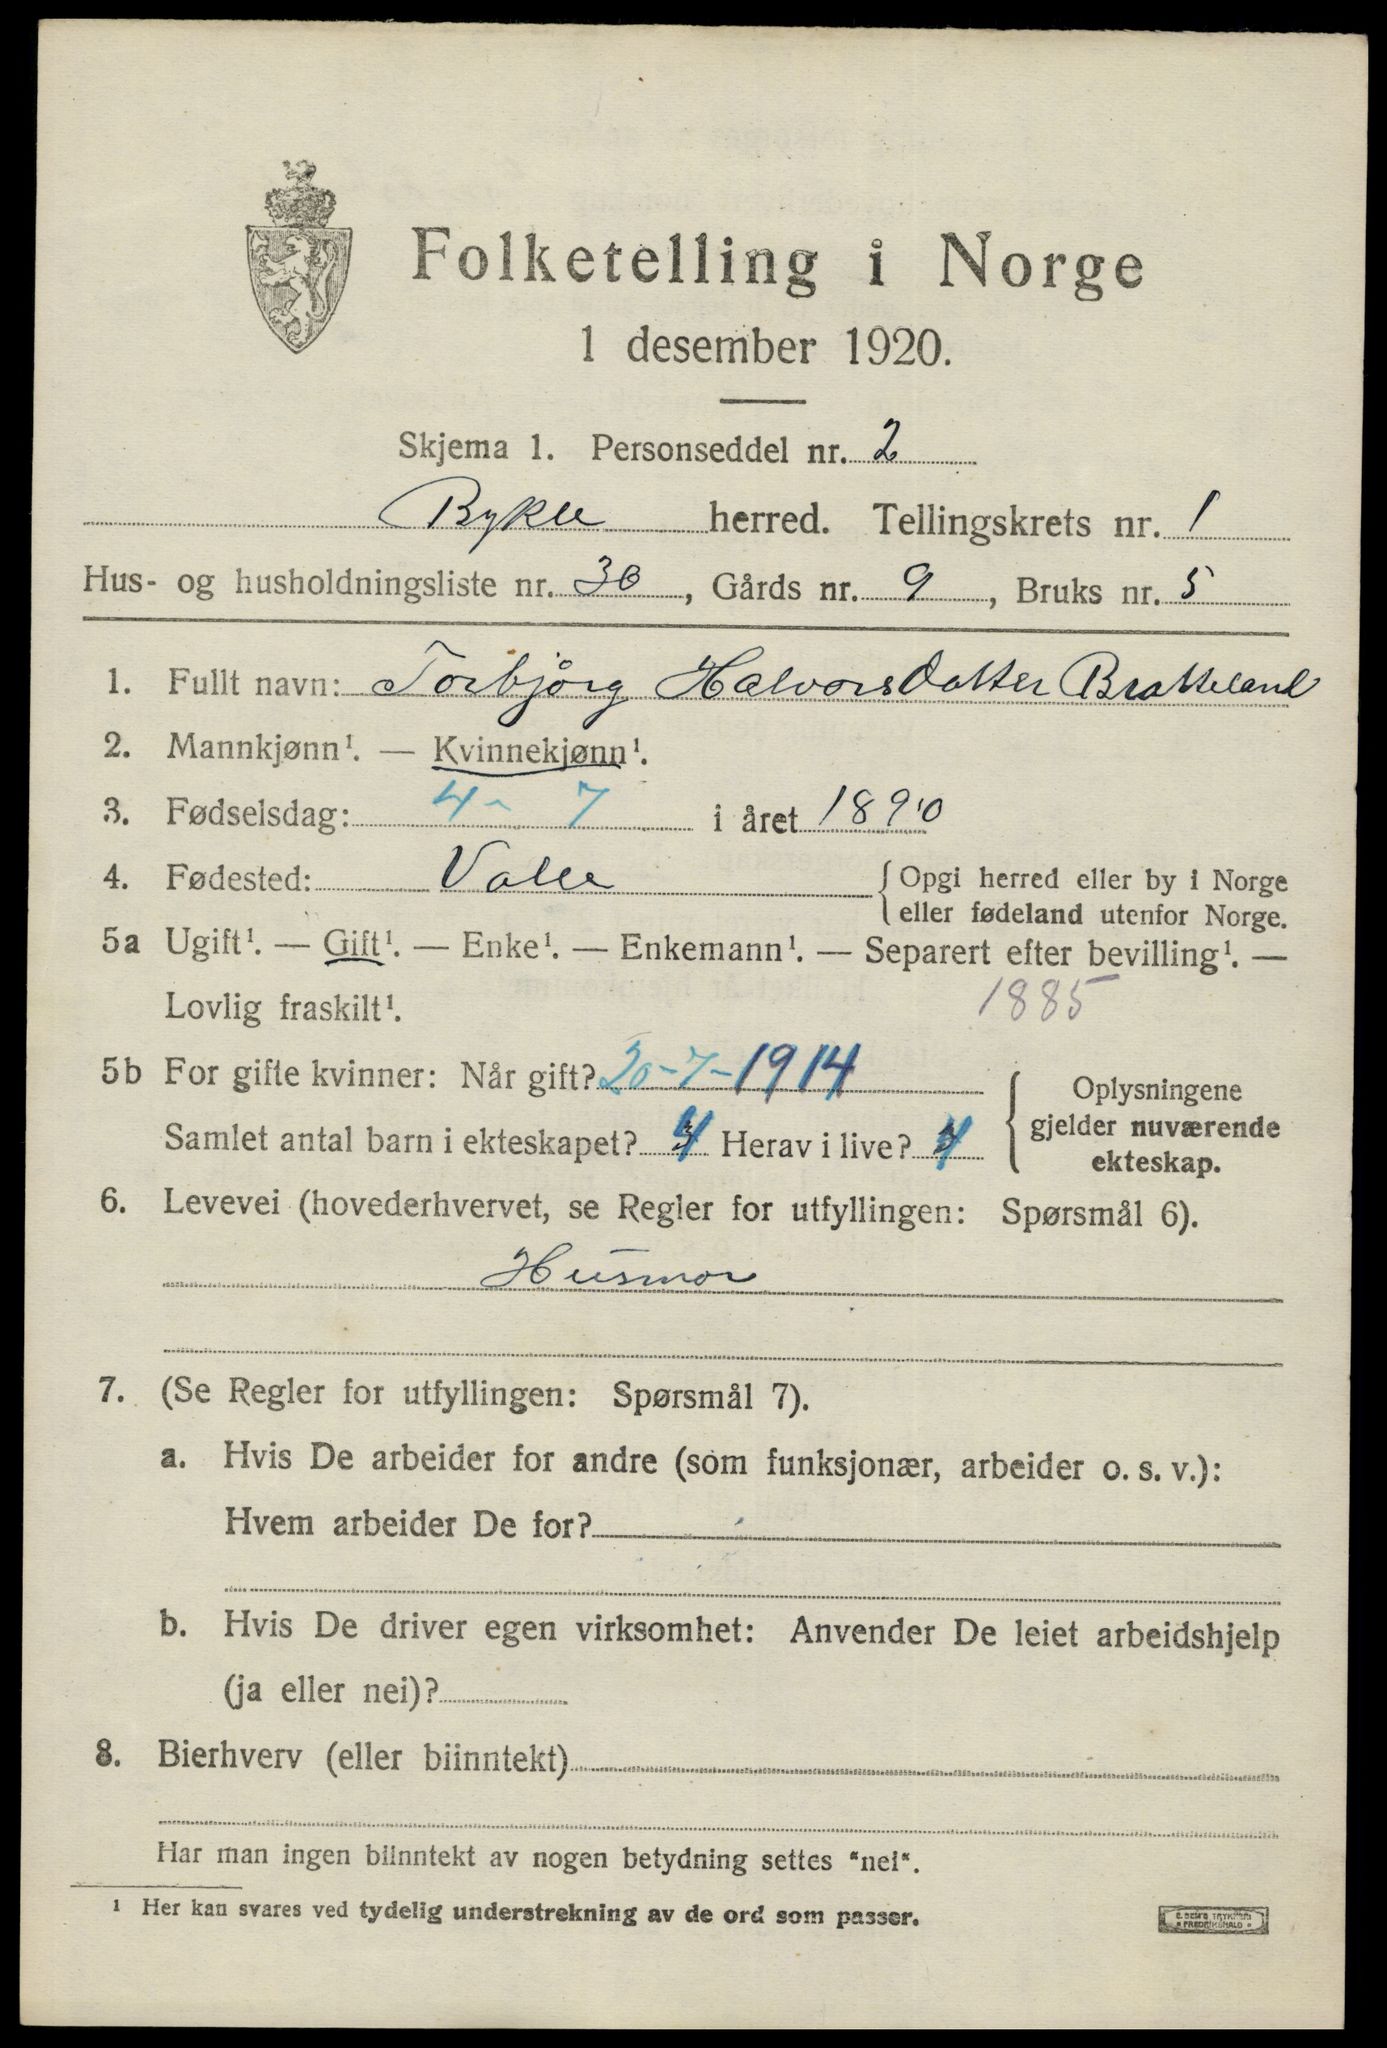 Folketelling i Norge
1 desember 1920.
Skjema 1. Personseddel nr. 2
Bykle herred. Tellingskrets nr. 1
Hus- og husholdningsliste nr. 30, Gårds nr. 9, Bruks nr. 5
1. Fullt navn: Torbjörg Halvorsdatter Bratteland
2. Mannkjønn¹. — Kvinnekjønn¹.
3. Fødselsdag: 4 - 7 i året 1890
4. Fødested: Valle { Opgi herred eller by i Norge
eller fødeland utenfor Norge.
5a Ugift¹. — Gift¹. — Enke¹. — Enkemann¹. — Separert efter bevilling¹. —
Lovlig fraskilt¹. 1885
5b For gifte kvinner: Når gift? 20-7-1914 { Oplysningene
Samlet antal barn i ekteskapet? 4 Herav i live? 4 gjelder nuværende
ekteskap.
6. Levevei (hovederhvervet, se Regler for utfyllingen: Spørsmål 6).
Husmor
7. (Se Regler for utfyllingen: Spørsmål 7).
a. Hvis De arbeider for andre (som funksjonær, arbeider o. s. v.):
Hvem arbeider De for?
b. Hvis De driver egen virksomhet: Anvender De leiet arbeidshjelp
(ja eller nei)?
8. Bierhverv (eller biinntekt)
Har man ingen biinntekt av nogen betydning settes "nei".
¹ Her kan svares ved tydelig understrekning av de ord som passer.
FREDRIKSHALD